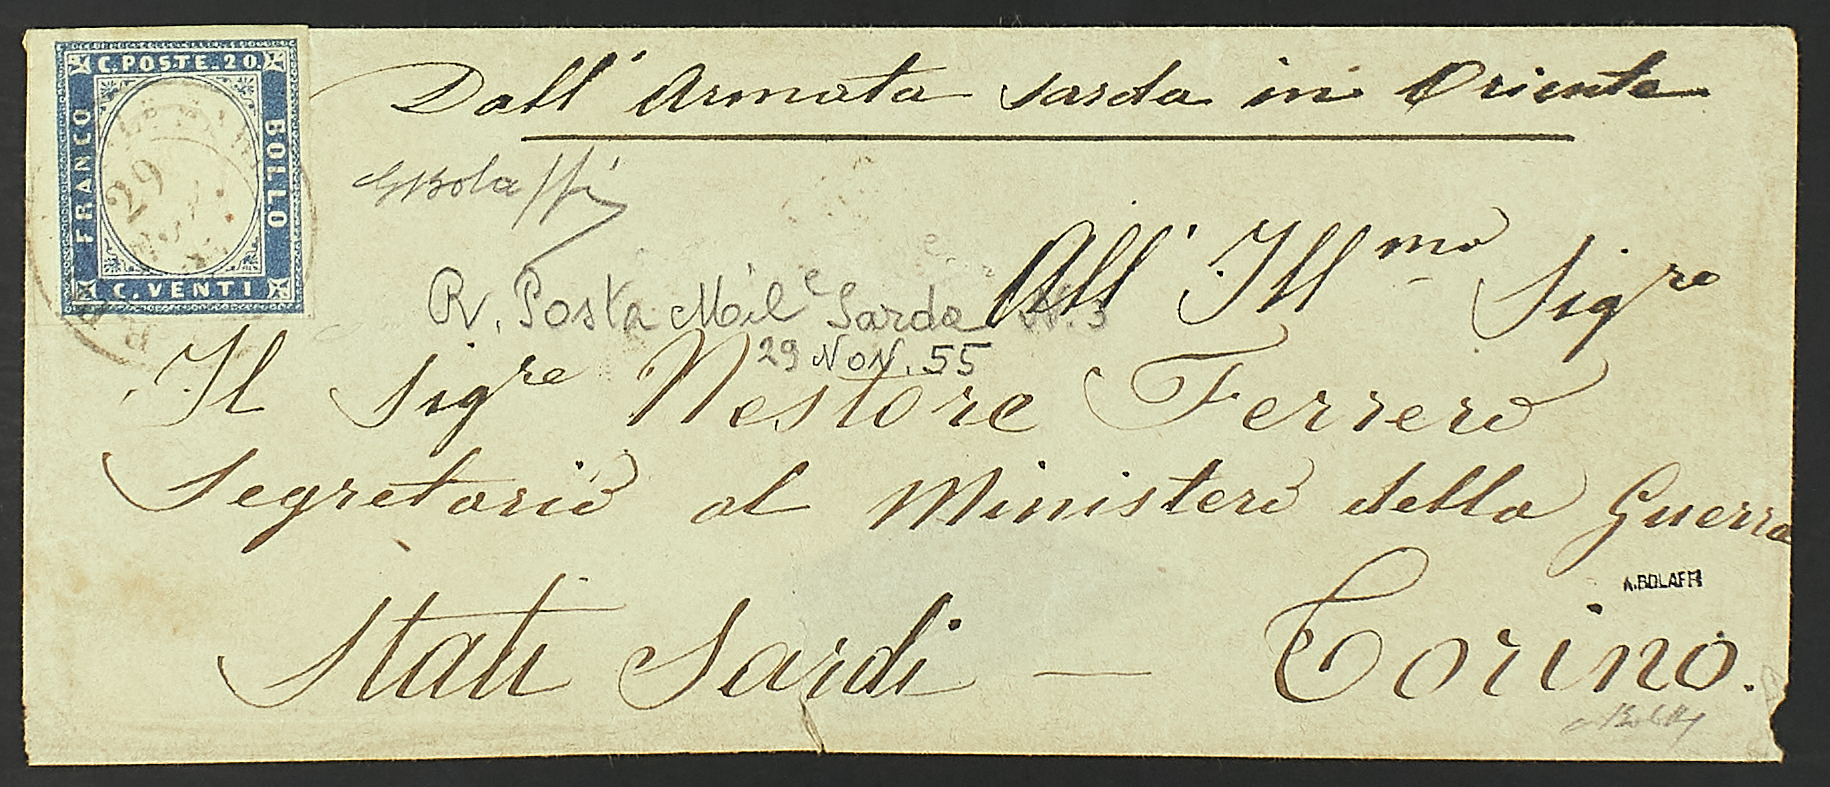 C. POSTE. 20.
FRANCO
BOLLO
C. VENTI
29
Dall' Armata Sarda in Oriente
GBolaffi
All' Ill.mo Sigre
R. Posta Mil.e Sarda N. 3
29 NOV. 55
Il Sigre Nestore Ferrero
Segretario al Ministero della Guerra
A. BOLAFFI
Stati Sardi — Torino.